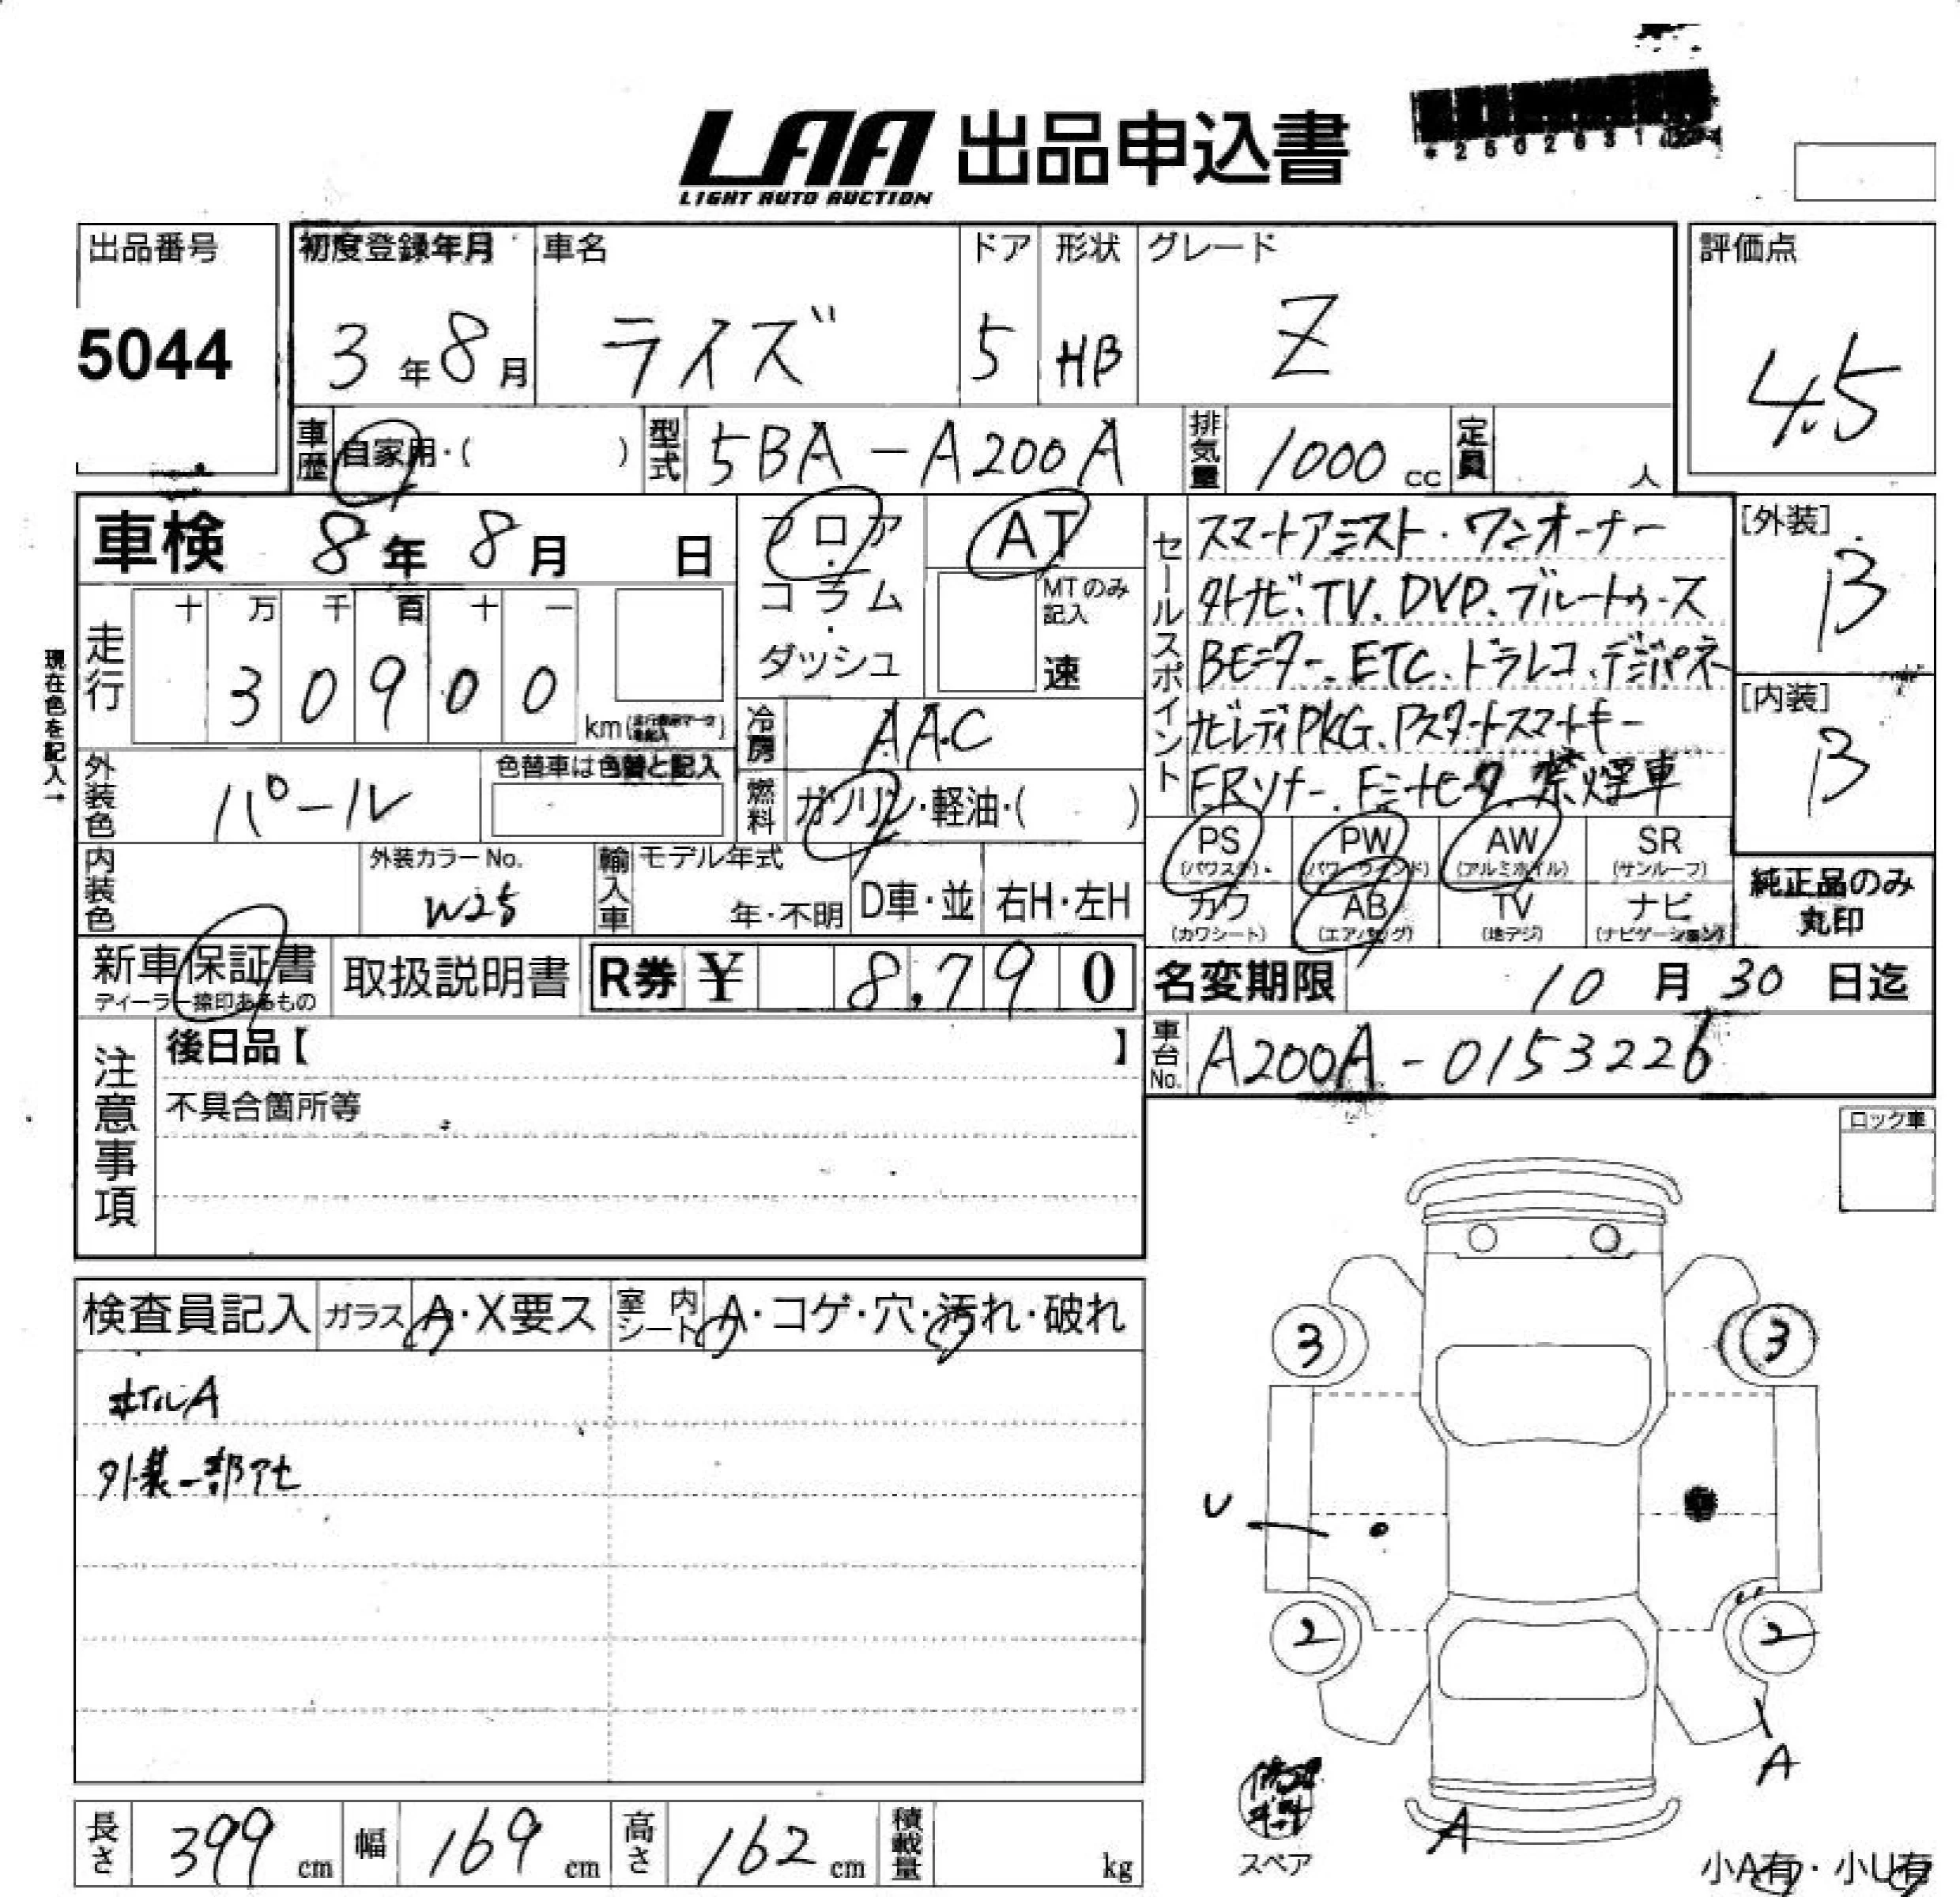 LAA 出品申込書
LIGHT AUTO AUCTION
出品番号
5044
初度登録年月 車名 ドア 形状 グレード
3年8月 ライズ 5 HB Z
評価点
4.5
車歴 自家用・( ) 型式 5BA-A200A 排気量 1000cc 定員 人
車検 8年8月 日
フロア・コラム・ダッシュ
AT
MTのみ記入
速
セールスポイント
スマートアシスト・ワンオーナー
外ナビ、TV、DVD、ブルートゥース
Bモニター、ETC、ドラレコ、デジパネ
ナビレディPKG、Pスタートスマートキー
FRソナー、禁煙車
[外装]
B
[内装]
B
現在色を記入→
走行 十万千百十一
30900 km
冷房 AAC
外装色 パール
色替車は色替と記入
燃料 ガソリン・軽油・( )
PS (パワステ)
PW (パワーウィンド)
AW (アルミホイル)
SR (サンルーフ)
カワ (カワシート)
AB (エアバッグ)
TV (地デジ)
ナビ (ナビゲーション)
純正品のみ
丸印
内装色
外装カラーNo.
W25
輸入車 モデル年式
年・不明 D車・並 右H・左H
新車保証書
ディーラー捺印あるもの
取扱説明書
R券 ¥ 8,790
名変期限 10月30日迄
車台No. A200A-0153226
注意事項
後日品【 】
不具合箇所等
ロック車
検査員記入 ガラス A・X要ス 室内シート A・コゲ・穴・汚れ・破れ
ホイルA
外装一部アセ
3 3
U
2 2
A
A
スペア
小A有・小U有
長さ 399cm 幅 169cm 高さ 162cm 積載量 kg